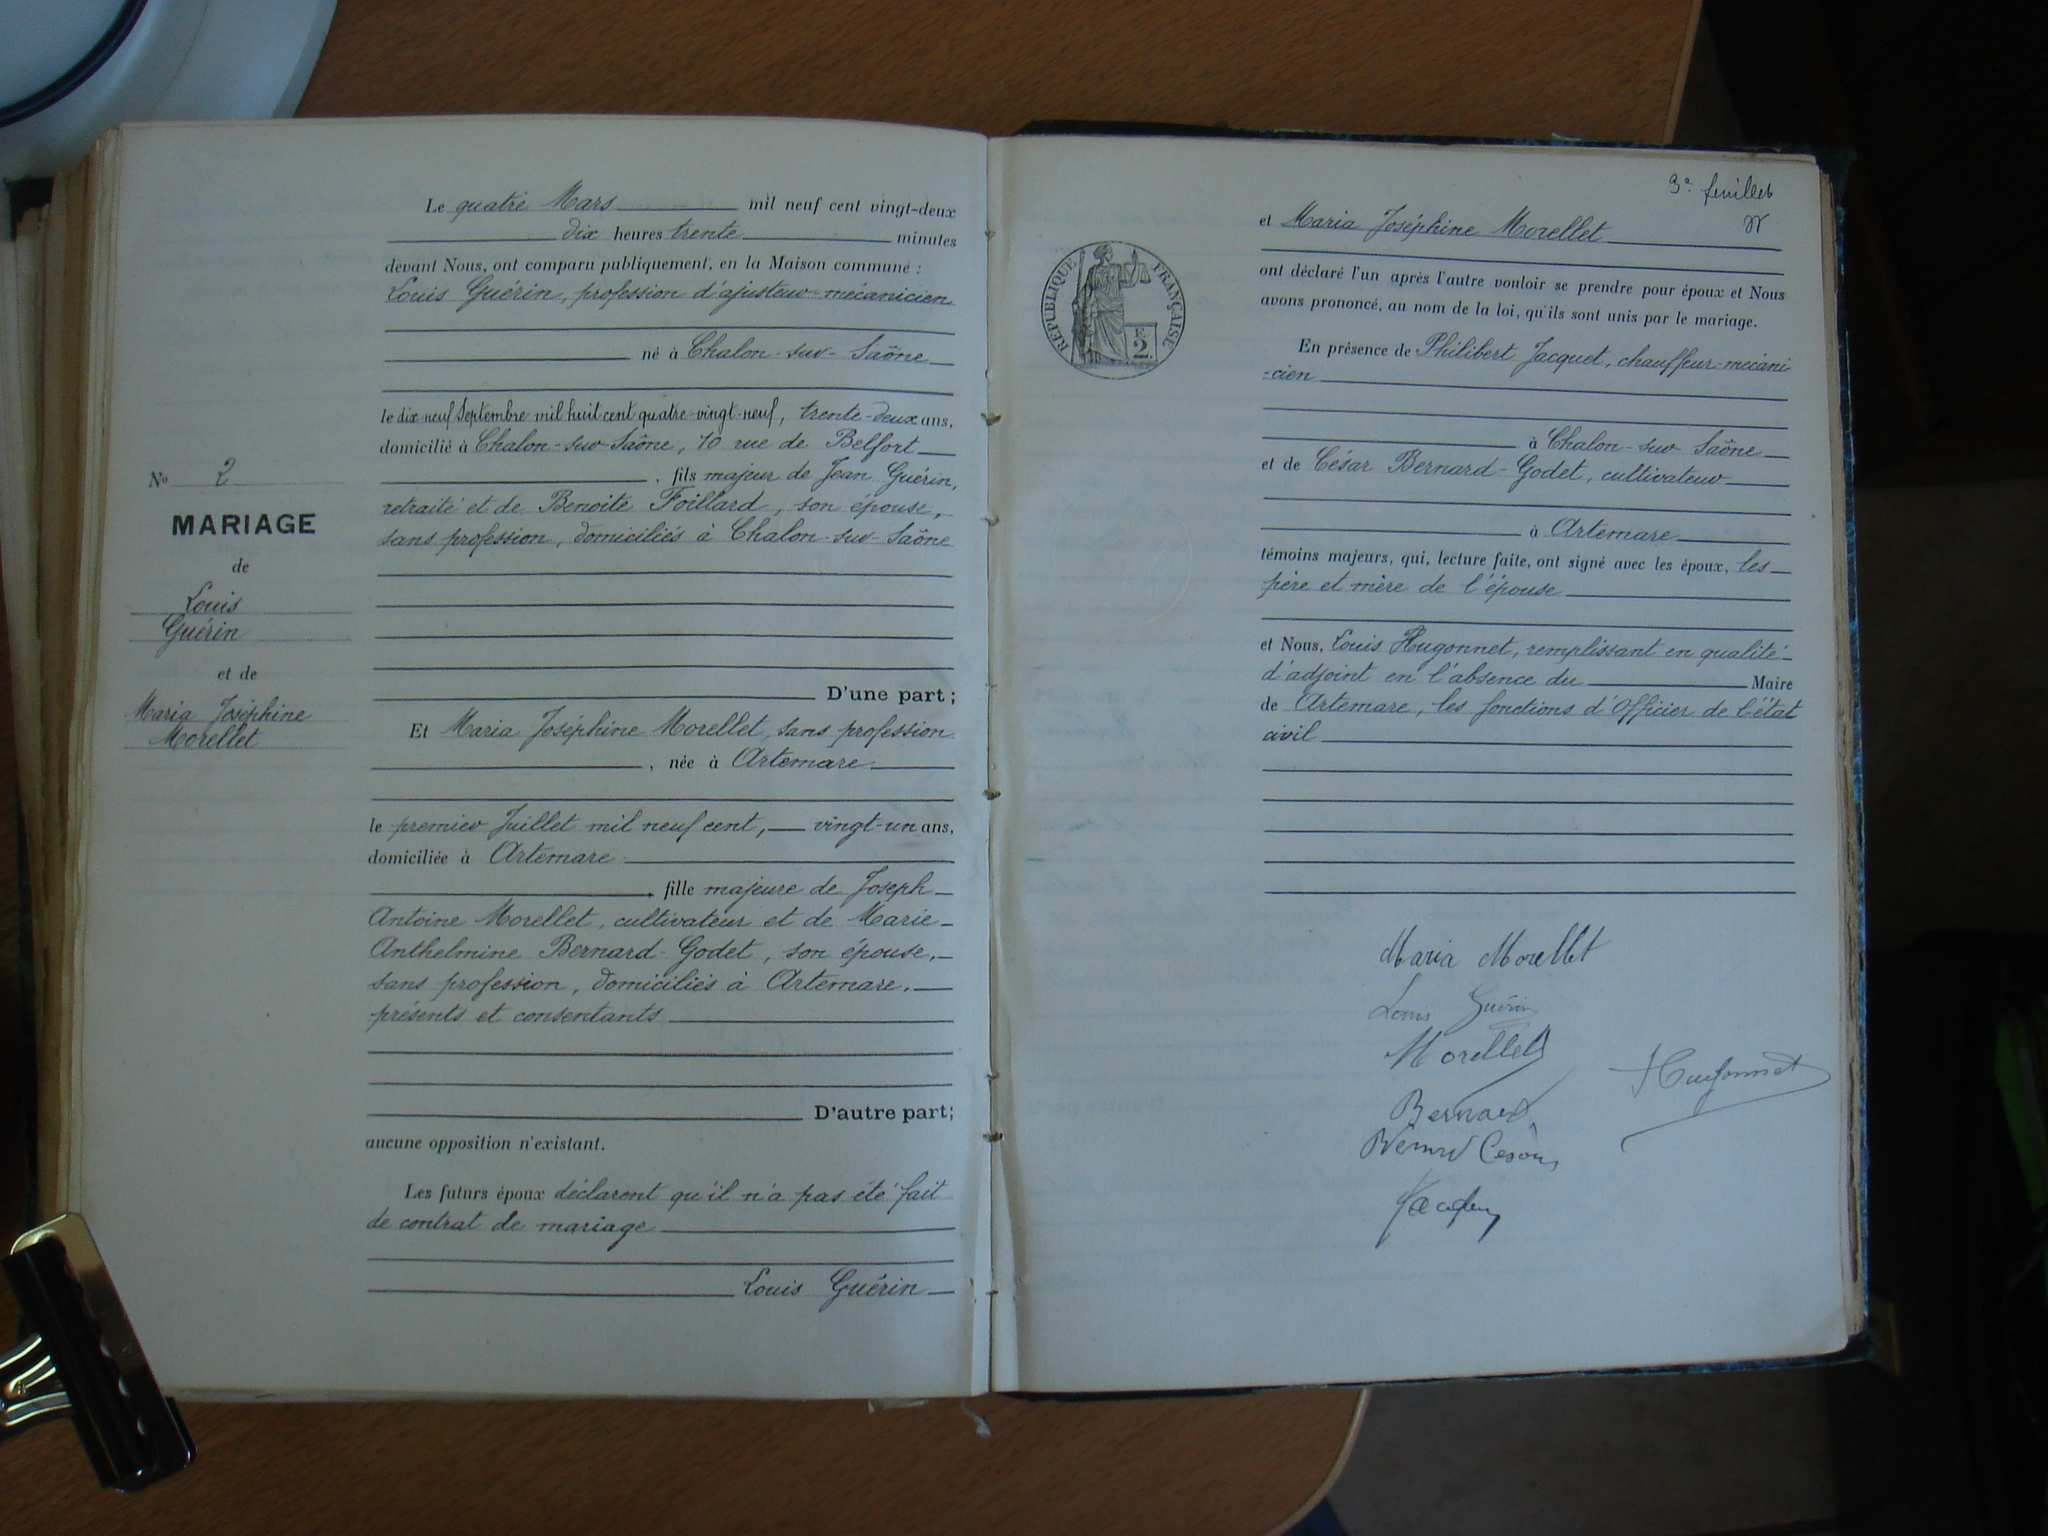 Le quatre Mars mil neuf cent vingt-deux
dix heures trente minutes
devant Nous, ont comparu publiquement, en la Maison commune :
Louis Guérin, profession d'ajusteur-mécanicien
né à Chalon-sur-Saône
le dix-neuf Septembre mil huit cent quatre-vingt-neuf, trente-deux ans,
domicilié à Chalon-sur-Saône, 10 rue de Belfort
, fils majeur de Jean Guérin,
retraité et de Benoite Foillard, son épouse,
sans profession, domiciliés à Chalon-sur-Saône
D'une part ;
Et Maria Joséphine Morellet, sans profession
, née à Artemare
le premier Juillet mil neuf cent, vingt-un ans,
domiciliée à Artemare
, fille majeure de Joseph
Antoine Morellet, cultivateur et de Marie
Anthelmine Bernard-Godet, son épouse,
sans profession, domiciliés à Artemare,
présents et consentants
D'autre part;
aucune opposition n'existant.
Les futurs époux déclarent qu'il n'a pas été fait
de contrat de mariage
Louis Guérin
No 2
MARIAGE
de
Louis
Guérin
et de
Maria Joséphine
Morellet
3e feuillet
et Maria Joséphine Morellet
ont déclaré l'un après l'autre vouloir se prendre pour époux et Nous
avons prononcé, au nom de la loi, qu'ils sont unis par le mariage.
En présence de Philibert Jacquet, chauffeur-mécani
-cien
à Chalon-sur-Saône
et de César Bernard-Godet, cultivateur
à Artemare
témoins majeurs, qui, lecture faite, ont signé avec les époux, les
père et mère de l'épouse
et Nous, Louis Hugonnet, remplissant en qualité
d'adjoint en l'absence du Maire
de Artemare, les fonctions d'Officier de l'état
civil
RÉPUBLIQUE FRANÇAISE
2
Maria Morellet
Louis Guérin
Morellet
Hugonnet
Bernard